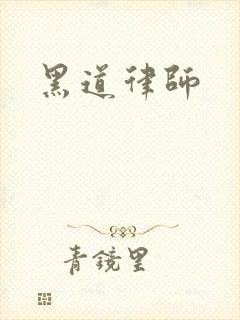 黑道律師
青鏡里